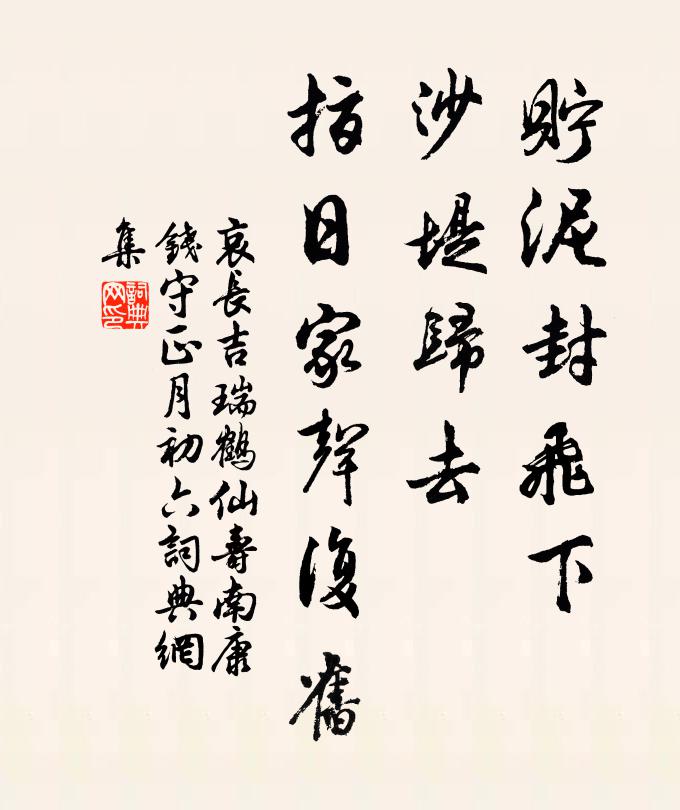 貯泥封飛下
沙堤歸去
指日家聲復舊
哀長吉瑞鶴仙壽南康
錢守正月初六詞典網
集
詞典网印